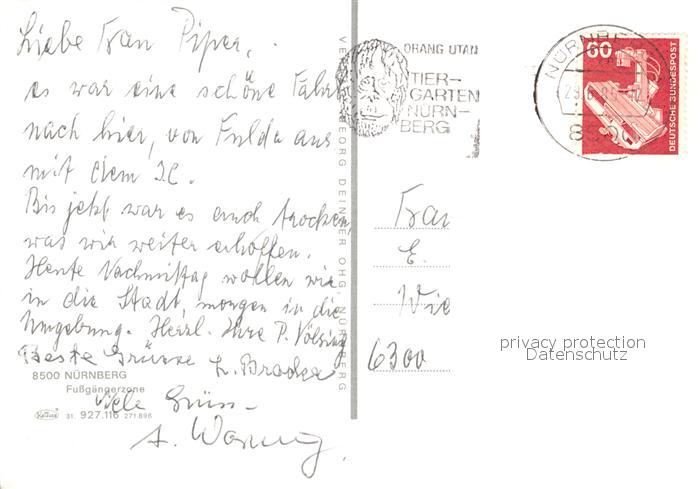 Liebe Frau Piper,
es war eine schöne Fahrt
nach hier, von Fulda aus
mit dem IC.
Bis jetzt war es auch trocken,
was wir weiter erhoffen.
Heute Nachmittag wollen wir
in die Stadt, morgen in die
Umgebung. Herzl. Ihre P. Völsing
Beste Grüsse L.
8500 NÜRNBERG
Fußgängerzone
Viele Grüsse
31. 927.116 271.896
A.
VERLAG GEORG DEINZER OHG. NÜRNBERG
ORANG UTAN
TIER-
GARTEN
NÜRN-
BERG
NÜRNBERG
8500
60
DEUTSCHE BUNDESPOST
Frau
E.
Wie
6300
privacy protection
Datenschutz